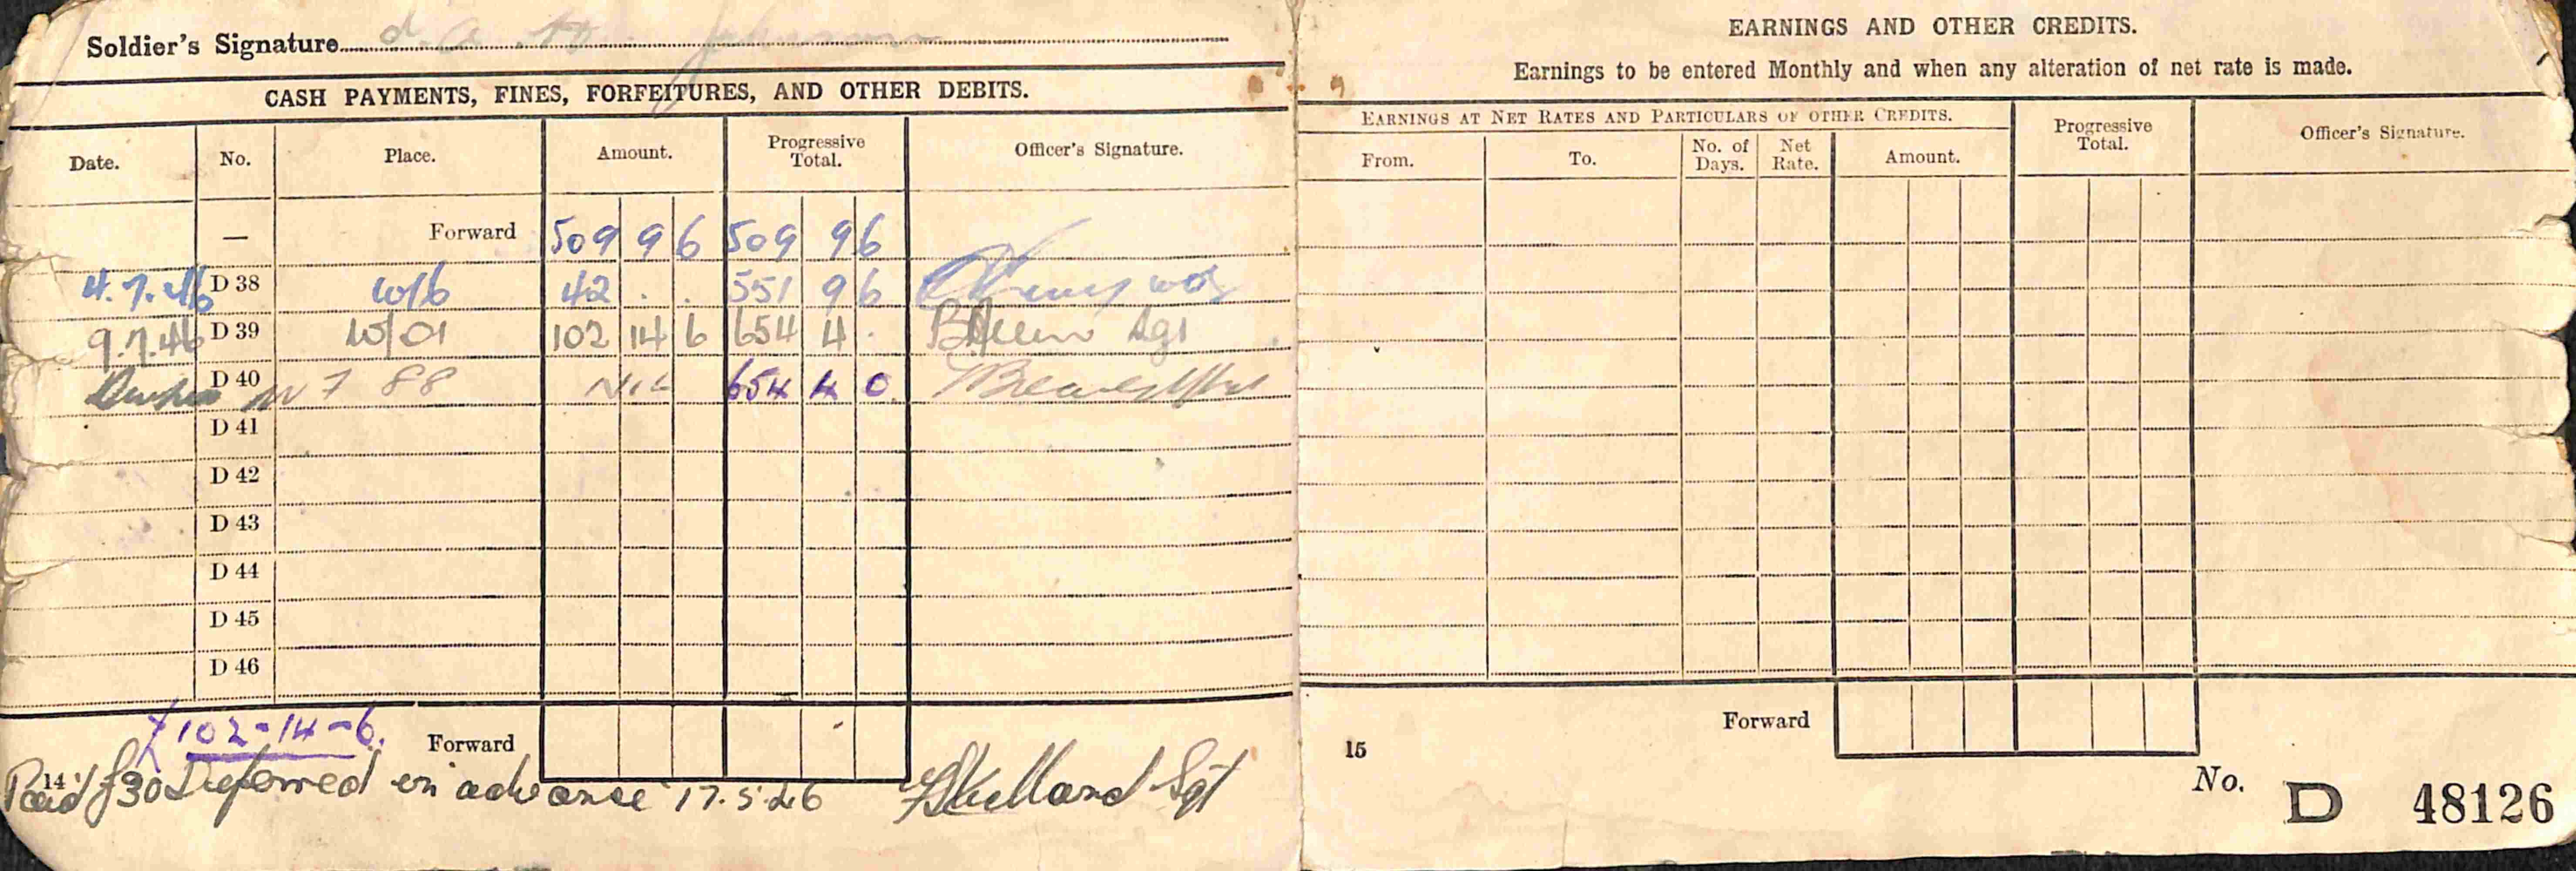 Soldier's Signature
CASH PAYMENTS, FINES, FORFEITURES, AND OTHER DEBITS.
Date. No. Place. Amount. Progressive Total. Officer's Signature.
— Forward 509 9 6 509 9 6
4.7.46 D 38 42 . . 551 9 6
9.7.46 D 39 102 14 6 654 4 .
D 40 88 Nil 654 4 0
D 41
D 42
D 43
D 44
D 45
D 46
£102-14-6. Forward
14
Paid £30 Deferred in advance 17.5.46 Sgt
EARNINGS AND OTHER CREDITS.
Earnings to be entered Monthly and when any alteration of net rate is made.
EARNINGS AT NET RATES AND PARTICULARS OF OTHER CREDITS. Progressive Total. Officer's Signature.
From. To. No. of Days. Net Rate. Amount.
Forward
15
No. D 48126